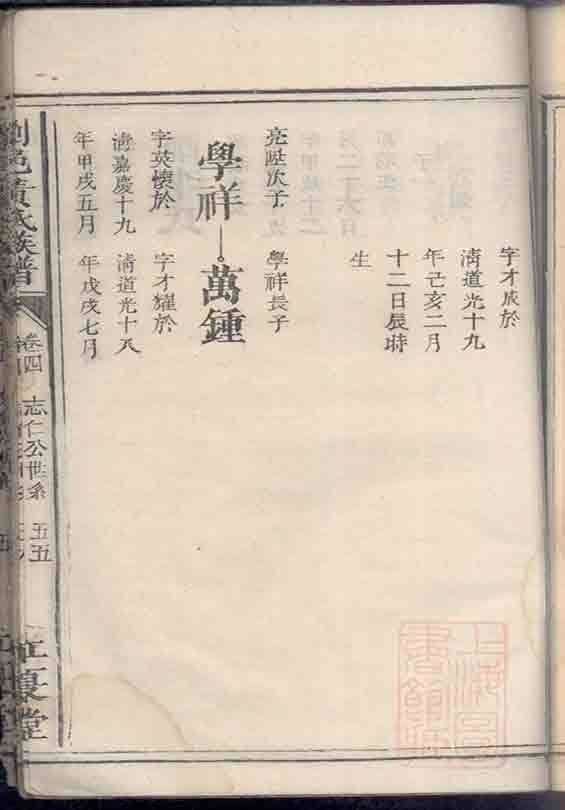 字才成於
清道光十九
年己亥二月
十二日辰時
生
亮陞次子
學祥長子
學祥
萬鍾
字英懷於
清嘉慶十九
年甲戌五月
字才耀於
清道光十八
年戊戌七月
瀏邑黃氏族譜
卷四
志仁公世系
五五
上海圖書館藏